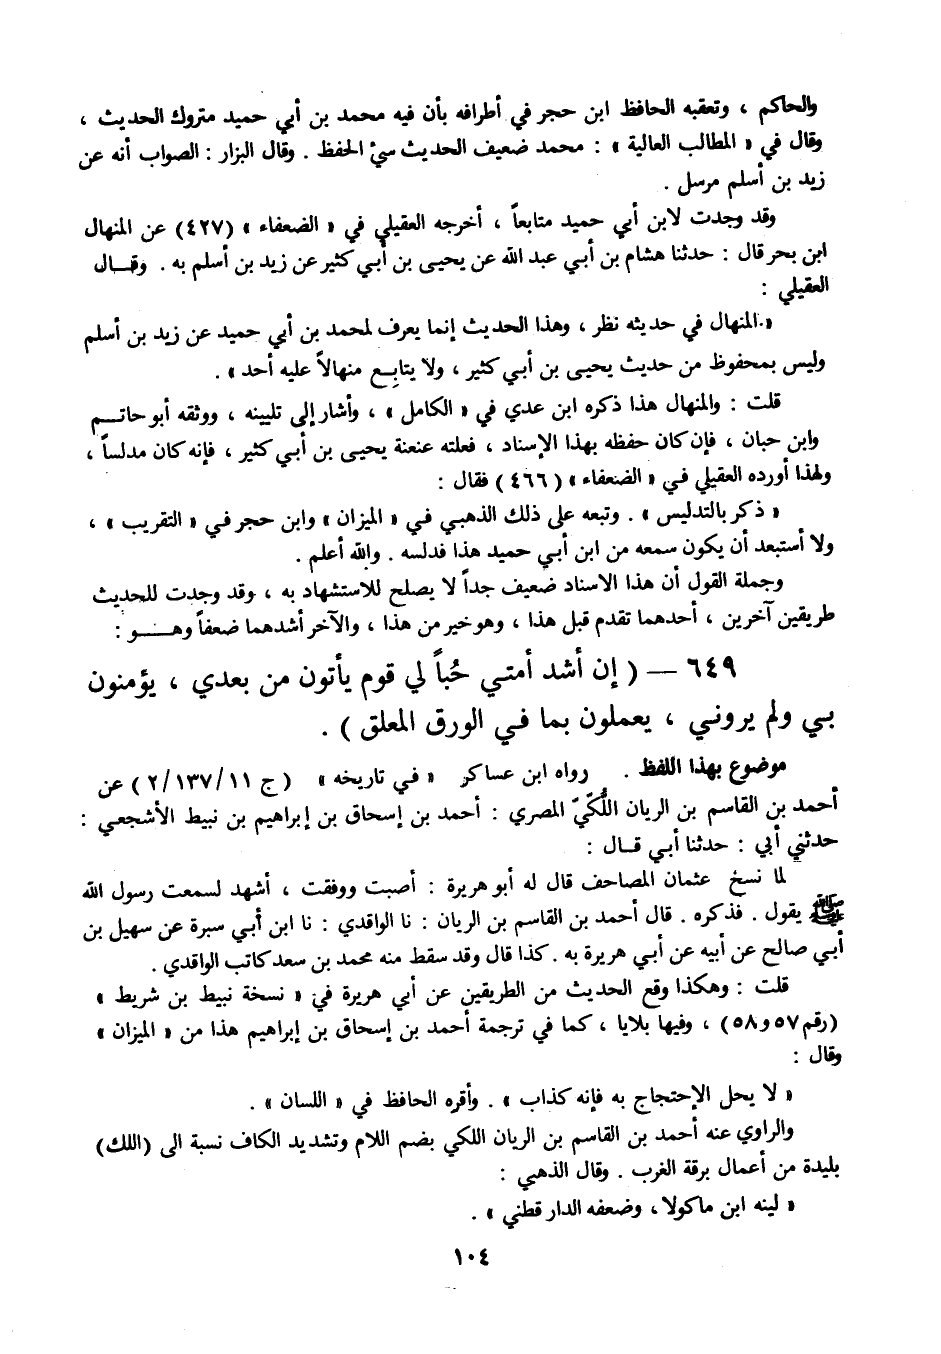 والحاكم ، وتعقبه الحافظ ابن حجر في أطرافه بأن فيه محمد بن أبي حميد متروك الحديث ،
وقال في « المطالب العالية » : محمد ضعيف الحديث سيء الحفظ . وقال البزار : الصواب أنه عن
زيد بن أسلم مرسل .
وقد وجدت لابن أبي حميد متابعاً ، أخرجه العقيلي في « الضعفاء » (٤٢٧) عن المنهال
ابن بحر قال : حدثنا هشام بن أبي عبد الله عن يحيى بن أبي كثير عن زيد بن أسلم به . وقـــال
العقيلي :
« المنهال في حديثه نظر ، وهذا الحديث إنما يعرف لمحمد بن أبي حميد عن زيد بن أسلم
وليس بمحفوظ من حديث يحيى بن أبي كثير ، ولا يتابـع منهالاً عليه أحد » .
قلت : والمنهال هذا ذكره ابن عدي في « الكامل » ، وأشار إلى تليينه ، ووثقه أبو حاتـــم
وابن حبان ، فإن كان حفظه بهذا الإسناد ، فعلته عنعنة يحيى بن أبي كثير ، فإنه كان مدلساً ،
ولهذا أورده العقيلي فـي « الضعفاء » (٤٦٦) فقال :
« ذكر بالتدليس » . وتبعه على ذلك الذهبي فـي « الميزان » وابن حجر فـي « التقريب » ،
ولا أستبعد أن يكون سمعه من ابن أبـي حميد هذا فدلسه . والله أعلم .
وجملة القول أن هذا الاسناد ضعيف جداً لا يصلح للاستشهاد به ، وقد وجدت للحديث
طريقين آخرين ، أحدهما تقدم قبل هذا ، وهو خير من هذا ، والآخر أشدهما ضعفاً وهـــو :
٦٤٩ — ( إن أشد أمتـي حُباً لي قوم يأتون من بعدي ، يؤمنون
بـي ولم يرونـي ، يعملون بما فـي الورق المعلق ) .
موضوع بهذا اللفظ . رواه ابن عساكر « فـي تاريخه » (ج ١١/١٣٧/٢) عن
أحمد بن القاسم بن الريان اللُّكّيّ المصري : أحمد بن إسحاق بن إبراهيم بن نبيط الأشجعـي :
حدثني أبي : حدثنا أبـي قــال :
لما نسخ عثمان المصاحف قال له أبو هريرة : أصبت ووفقت ، أشهد لسمعت رسول الله
ﷺ يقول . فذكره . قال أحمد بن القاسم بن الريان : نا الواقدي : نا ابن أبـي سبرة عن سهيل بن
أبـي صالح عن أبيه عن أبـي هريرة به . كذا قال وقد سقط منه محمد بن سعد كاتب الواقدي .
قلت : وهكذا وقع الحديث من الطريقين عن أبي هريرة في « نسخة نبيط بن شريط »
(رقم ٥٧ و٥٨) ، وفيها بلايا ، كما في ترجمة أحمد بن إسحاق بن إبراهيم هذا من « الميزان »
وقال :
« لا يحل الإحتجاج به فإنه كذاب » . وأقره الحافظ في « اللسان » .
والراوي عنه أحمد بن القاسم بن الريان اللكي بضم اللام وتشديد الكاف نسبة الى (اللك)
بليدة من أعمال برقة الغرب . وقال الذهبي :
« لينه ابن ماكولا ، وضعفه الدار قطني » .
١٠٤